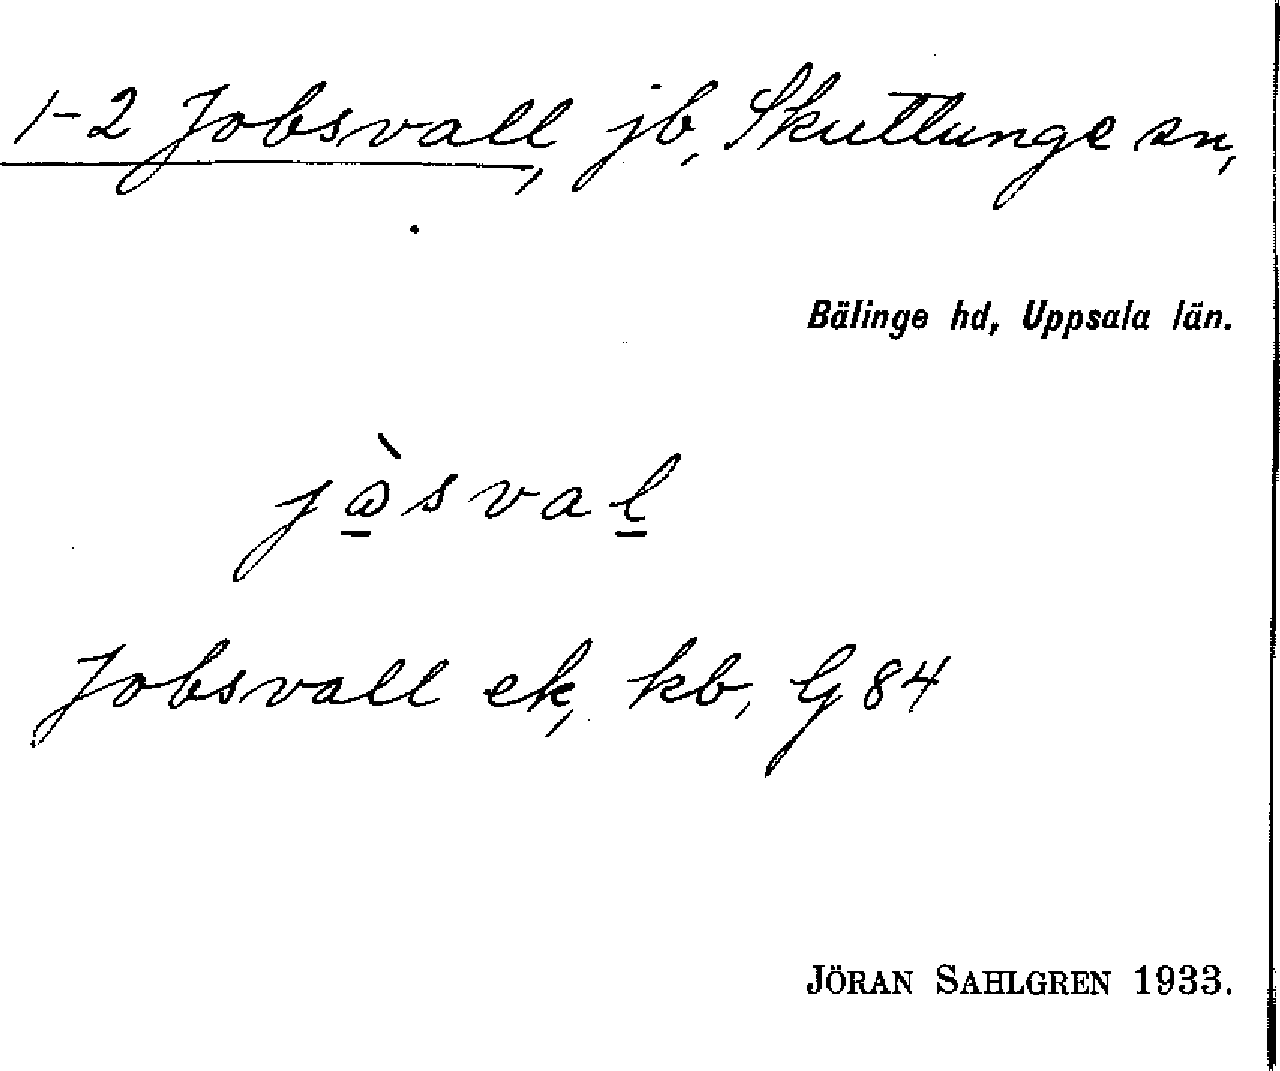 1-2 Jobsvall, jb, Skuttunge sn,
Bälinge hd, Uppsala län.
Jobsvall ek, kb, G 84
JÖRAN SAHLGREN 1933.